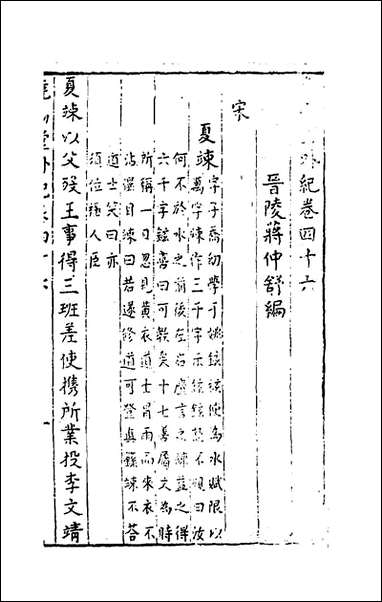 外紀卷四十六
晉陵蔣仲舒編
宋
夏竦字子喬幼學于姚鉉鉉使為水賦限以
萬字竦作三千字示鉉鉉怒不視曰汝
何不於水之前後左右廣言之竦益之得
六千字鉉喜曰可教矣十七善屬文為時
所稱一日忽見黃衣道士冒雨而來衣不
沾濕目竦曰若遂修道可登真籙竦不荅
道士笑曰亦
須位極人臣
夏竦以父歿王事得三班差使攜所業投李文靖